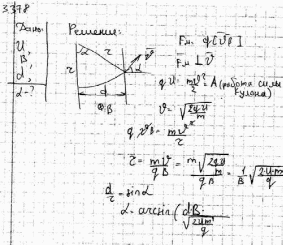 3.378
Дано:
U,
B,
d,
α-?
Решение:
α
r
r
v⃗
α
d
⊗B
Fл = q[v⃗B⃗]
F⃗л ⊥ v⃗
qU = mv²/2 = A (работа силы
кулона)
v = √(2qU/m)
qvB = mv²/r
r = mv/qB = m√(2qU/m)/qB = 1/B √(2U·m/q)
d/r = sinα
α = arcsin(dB/√(2Um/q))